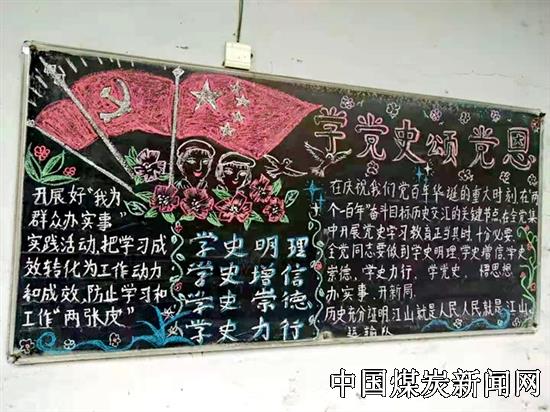 学党史颂党恩
开展好"我为
群众办实事"
实践活动,把学习成
效转化为工作动力
和成效,防止学习和
工作"两张皮"
学史明理
学史增信
学史崇德
学史力行
在庆祝我们党百年华诞的重大时刻,在"两
个一百年"奋斗目标历史交汇的关键节点,在全党集
中开展党史学习教育正当其时,十分必要.
全党同志要做到学史明理,学史增信,学史
崇德,学史力行,学党史、悟思想、
办实事、开新局.
历史充分证明,江山就是人民人民就是江山
中国煤炭新闻网